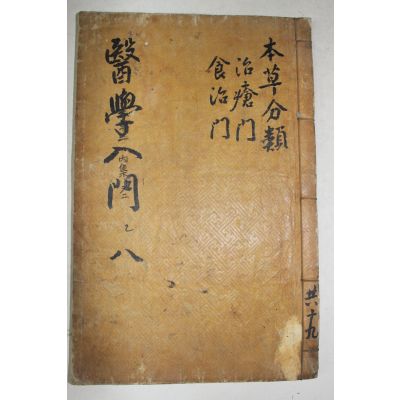 醫學入門 内集二 乙 八
本草分類
治瘡門
食治門
共十九